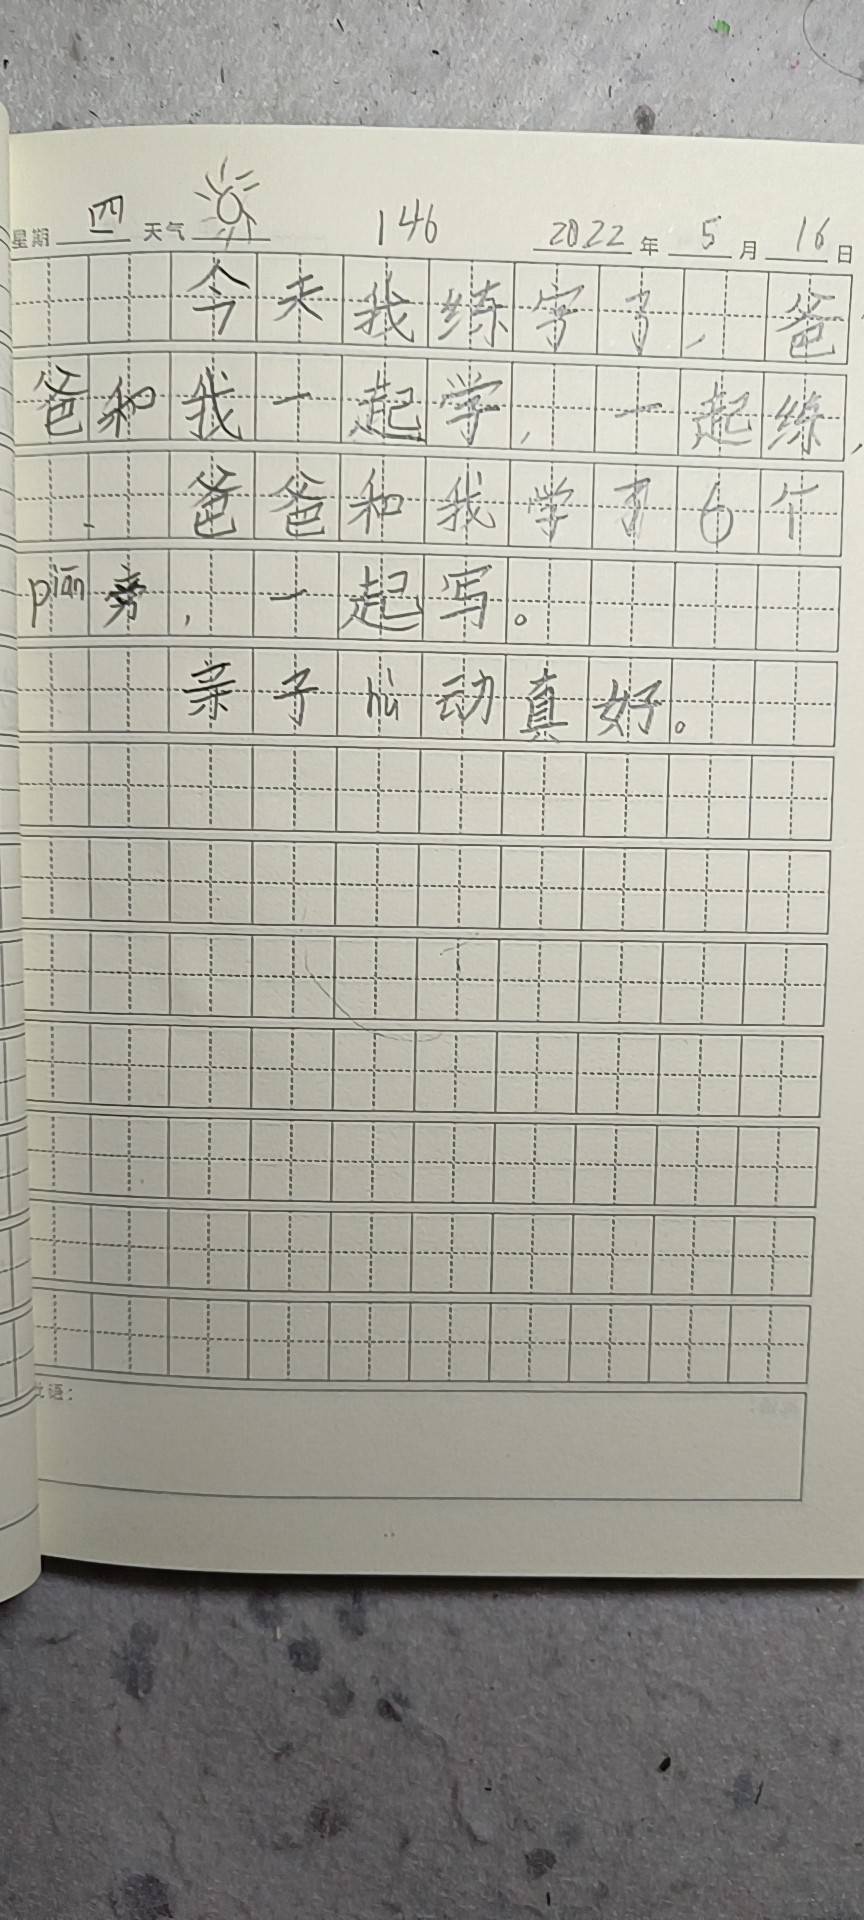 星期 四 天气 146 2022 年 5 月 16 日
今天我练字了，爸
爸和我一起学，一起练，
爸爸和我学了6个
piān旁，一起写。
亲子hù动真好。
批语：